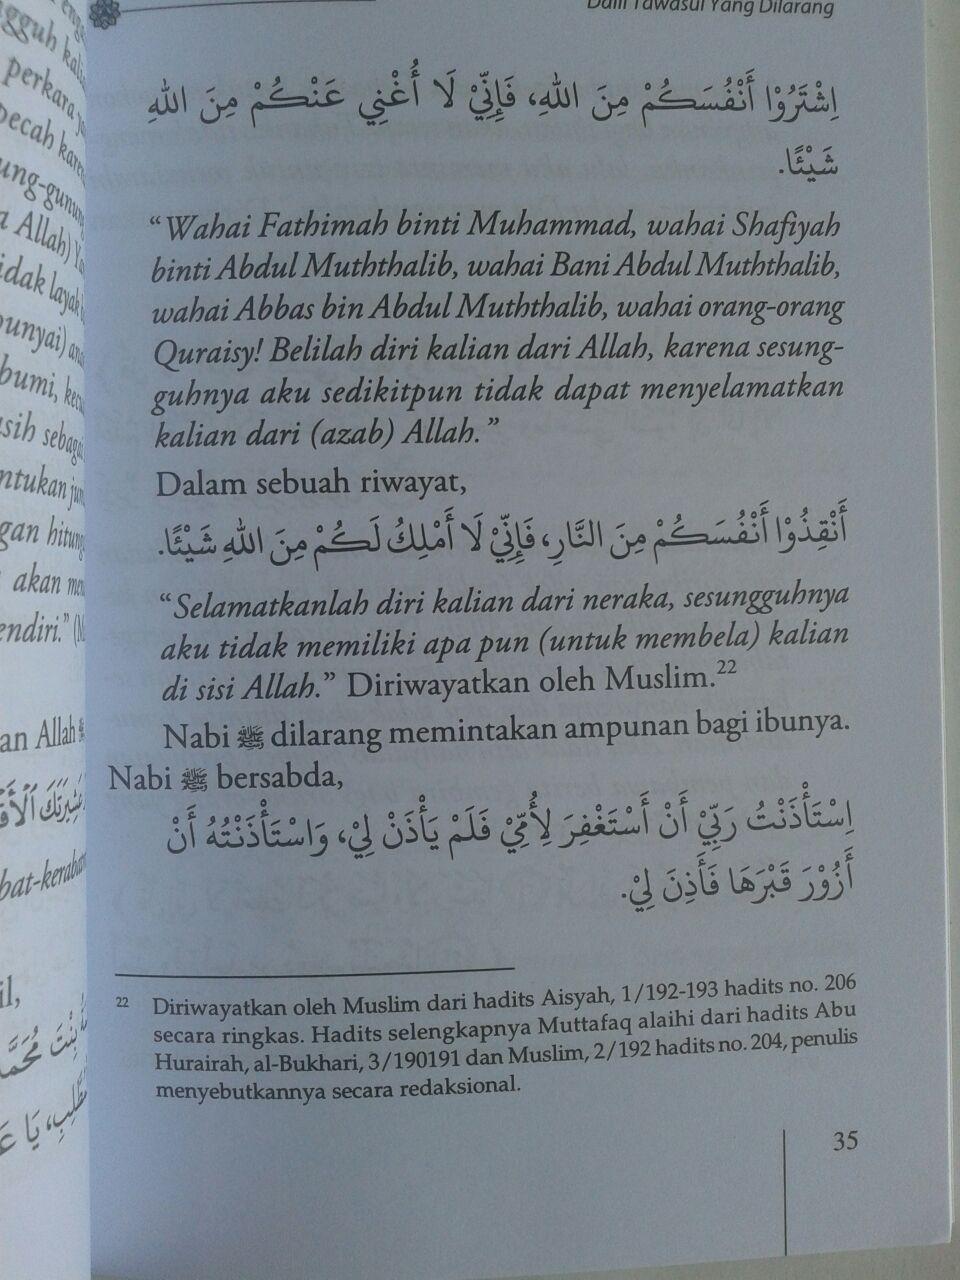 Dalil Tawasul Yang Dilarang
اِشْتَرُوْا أَنْفُسَكُمْ مِنَ اللهِ، فَإِنِّيْ لَا أُغْنِي عَنْكُمْ مِنَ اللهِ
شَيْئًا.
“Wahai Fathimah binti Muhammad, wahai Shafiyah
binti Abdul Muththalib, wahai Bani Abdul Muththalib,
wahai Abbas bin Abdul Muththalib, wahai orang-orang
Quraisy! Belilah diri kalian dari Allah, karena sesung-
guhnya aku sedikitpun tidak dapat menyelamatkan
kalian dari (azab) Allah.”
Dalam sebuah riwayat,
أَنْقِذُوْا أَنْفُسَكُمْ مِنَ النَّارِ، فَإِنِّيْ لَا أَمْلِكُ لَكُمْ مِنَ اللهِ شَيْئًا.
“Selamatkanlah diri kalian dari neraka, sesungguhnya
aku tidak memiliki apa pun (untuk membela) kalian
di sisi Allah.” Diriwayatkan oleh Muslim.22
Nabi ﷺ dilarang memintakan ampunan bagi ibunya.
Nabi ﷺ bersabda,
اِسْتَأْذَنْتُ رَبِّيْ أَنْ أَسْتَغْفِرَ لِأُمِّيْ فَلَمْ يَأْذَنْ لِيْ، وَاسْتَأْذَنْتُهُ أَنْ
أَزُوْرَ قَبْرَهَا فَأَذِنَ لِيْ.
22 Diriwayatkan oleh Muslim dari hadits Aisyah, 1/192-193 hadits no. 206
secara ringkas. Hadits selengkapnya Muttafaq alaihi dari hadits Abu
Hurairah, al-Bukhari, 3/190191 dan Muslim, 2/192 hadits no. 204, penulis
menyebutkannya secara redaksional.
35